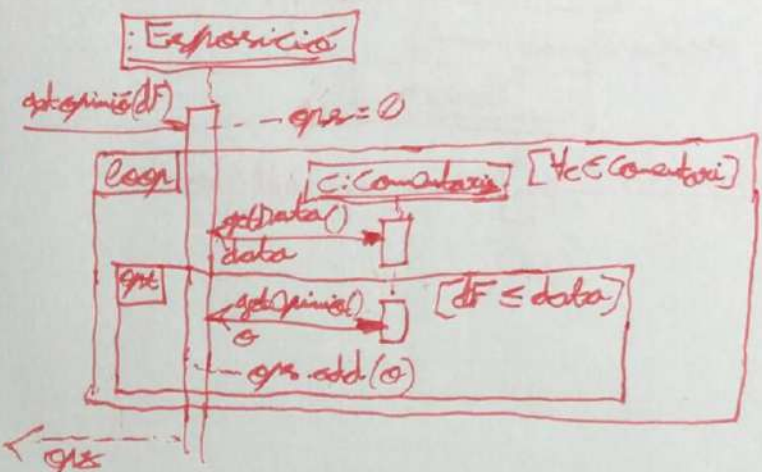 : Exposició
opt.opinió(dF)
ops = ∅
loop
c: Comentario
[∀c ∈ Comentari]
getData()
data
opt
[dF ≤ data]
getOpinió()
o
ops.add(o)
ops